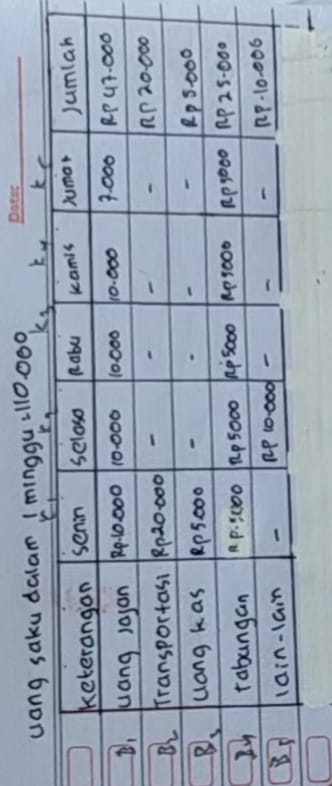 Date:
uang saku dalam 1 minggu = 110.000
k1 k2 k3 k4 k5
Keterangan Senin Selasa Rabu Kamis Jumat Jumlah
B1 Uang Jajan Rp.10000 10.000 10.000 10.000 7.000 Rp 47.000
B2 Transportasi Rp20.000 - - - - Rp 20.000
B3 Uang Kas Rp5000 - - - - Rp 5.000
B4 Tabungan Rp.5000 Rp5000 Rp5000 Rp5000 Rp5000 Rp 25.000
B5 lain-lain - Rp 10.000 - - - Rp.10.000